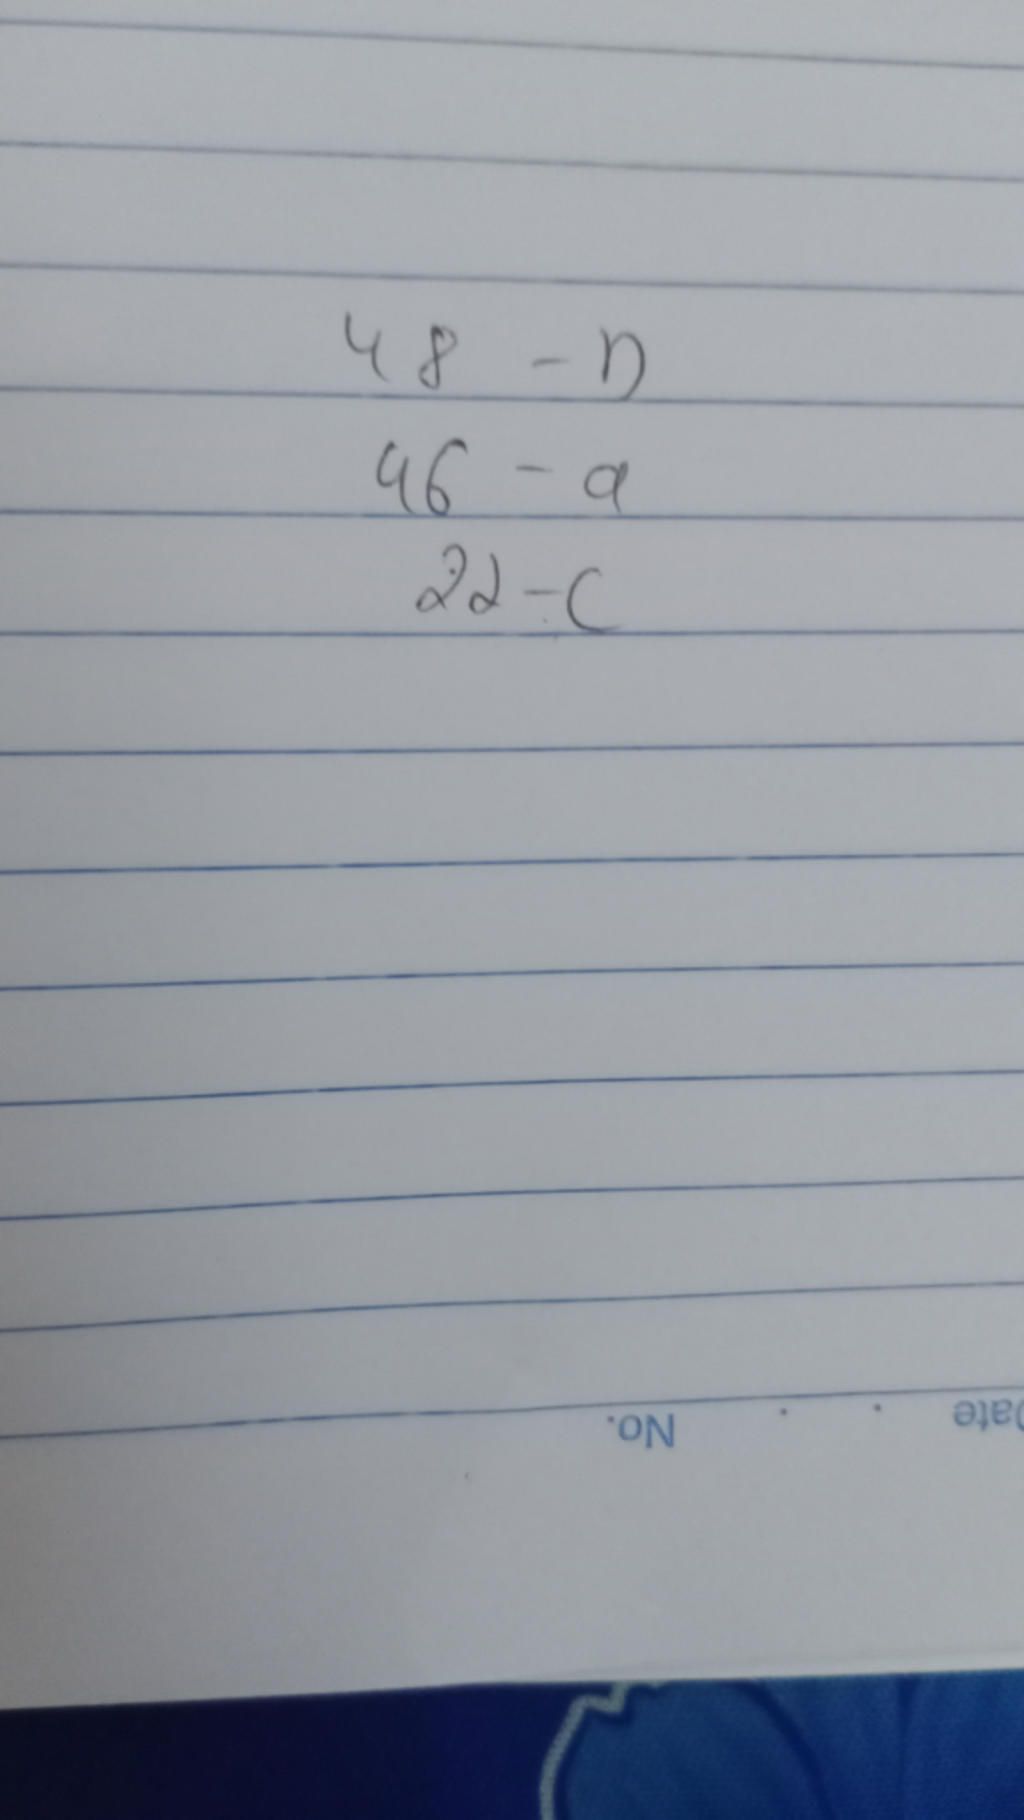 48 - D
46 - a
22 - C
No.
Date